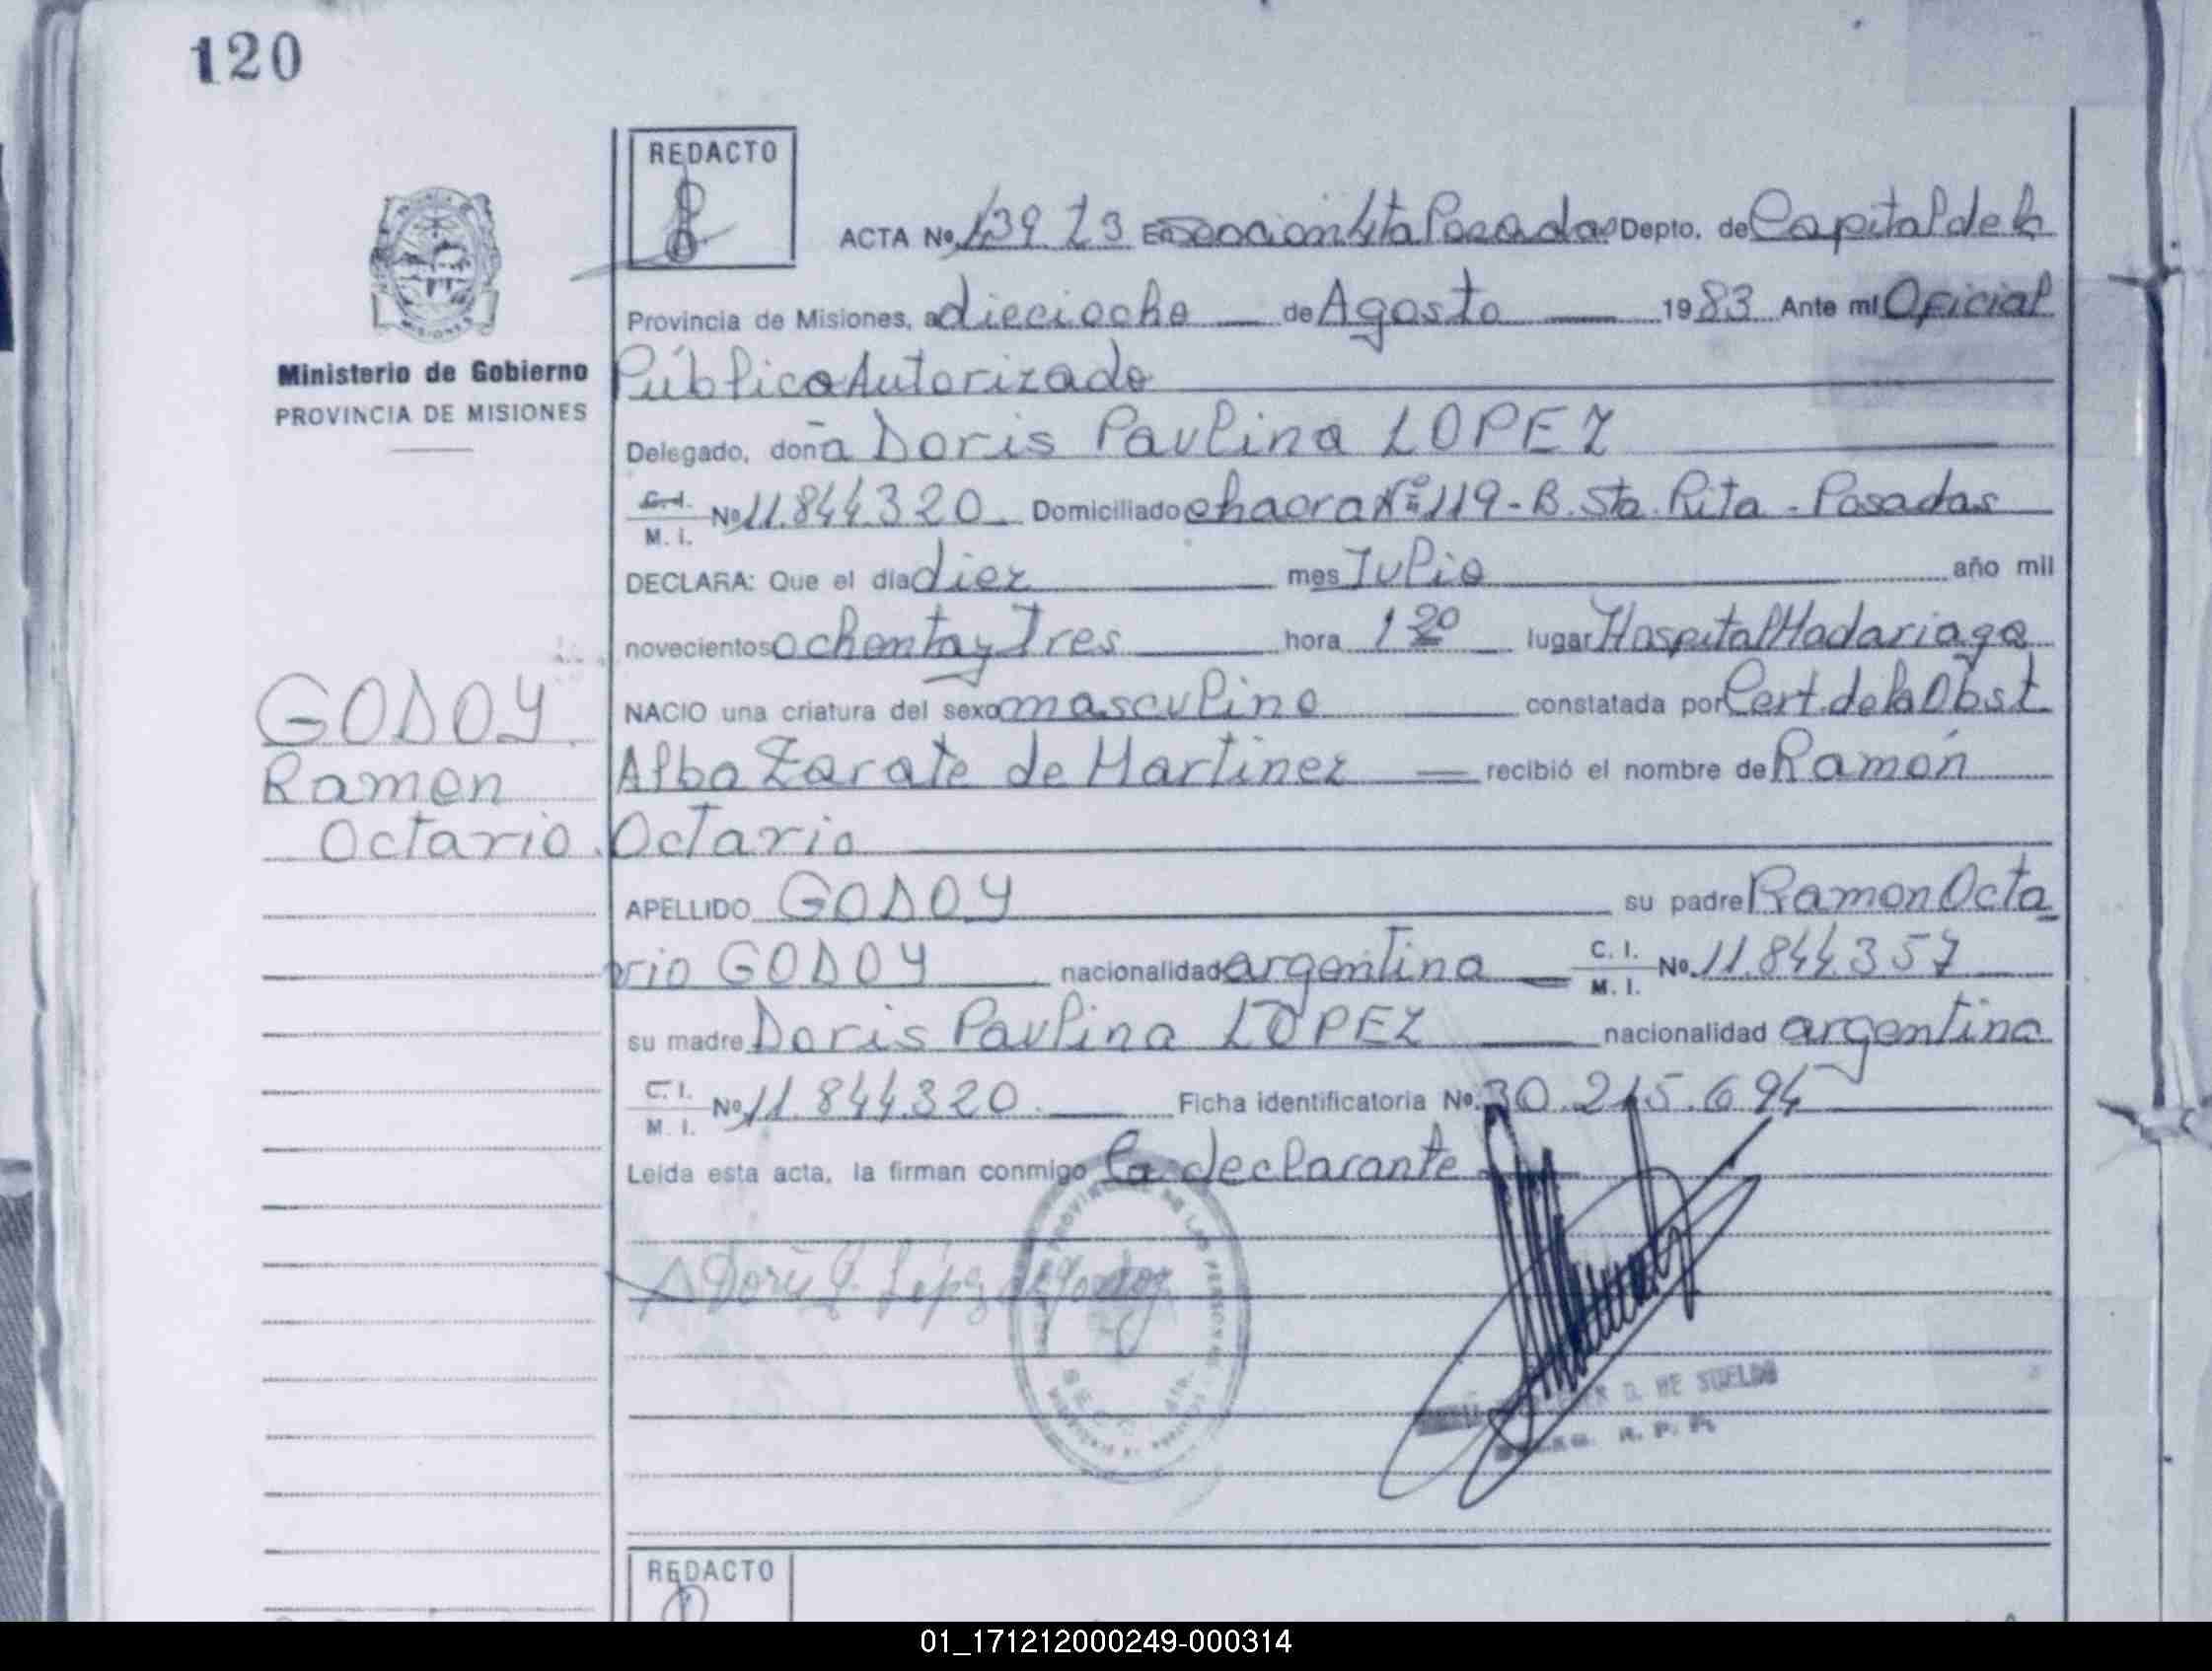 120
REDACTO
ACTA No. 1397.3 En Seccion 4ta Posadas Depto. de Capital de la
Provincia de Misiones, a dieciocho de Agosto 1983 Ante mí Oficial
Ministerio de Gobierno
PROVINCIA DE MISIONES
Público Autorizado
Delegado, doña Doris Paulina LOPEZ
C.I. M. I. No 11.844.320 Domiciliado chacra Nº 119-B. Sta. Rita - Posadas
DECLARA: Que el día diez mes Julio año mil
novecientos ochenta y Tres hora 1 20 lugar Hospital Madariaga
NACIO una criatura del sexo masculino constatada por Cert. de la Obst
Alba Zarate de Martinez recibió el nombre de Ramón
Octario
GODOY
Ramon
Octario.
APELLIDO GODOY su padre Ramon Octa
rio GODOY nacionalidad argentina C. I. M. I. No. 11.844.357
su madre Doris Paulina LOPEZ nacionalidad argentina
C. I. M. I. No 11.844.320. Ficha identificatoria No. 30.215.694
Leida esta acta, la firman conmigo la declarante
Doris P. López de Godoy
D. DE SUELDO
R. P. P.
REDACTO
01_171212000249-000314